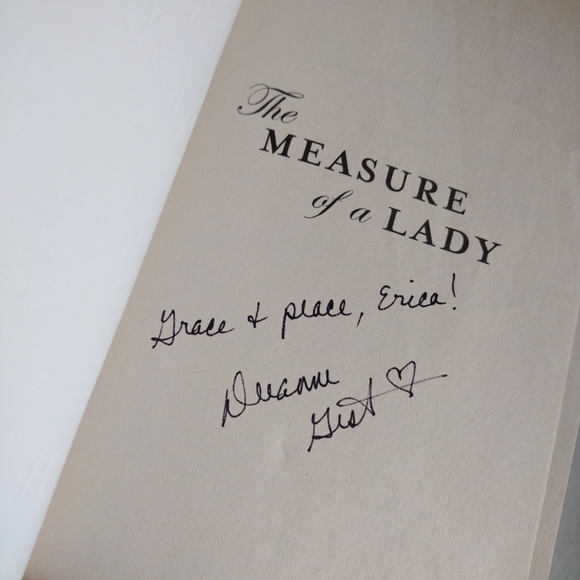 The
MEASURE
of a LADY
Grace & peace, Erica!
Deeanne
Gist